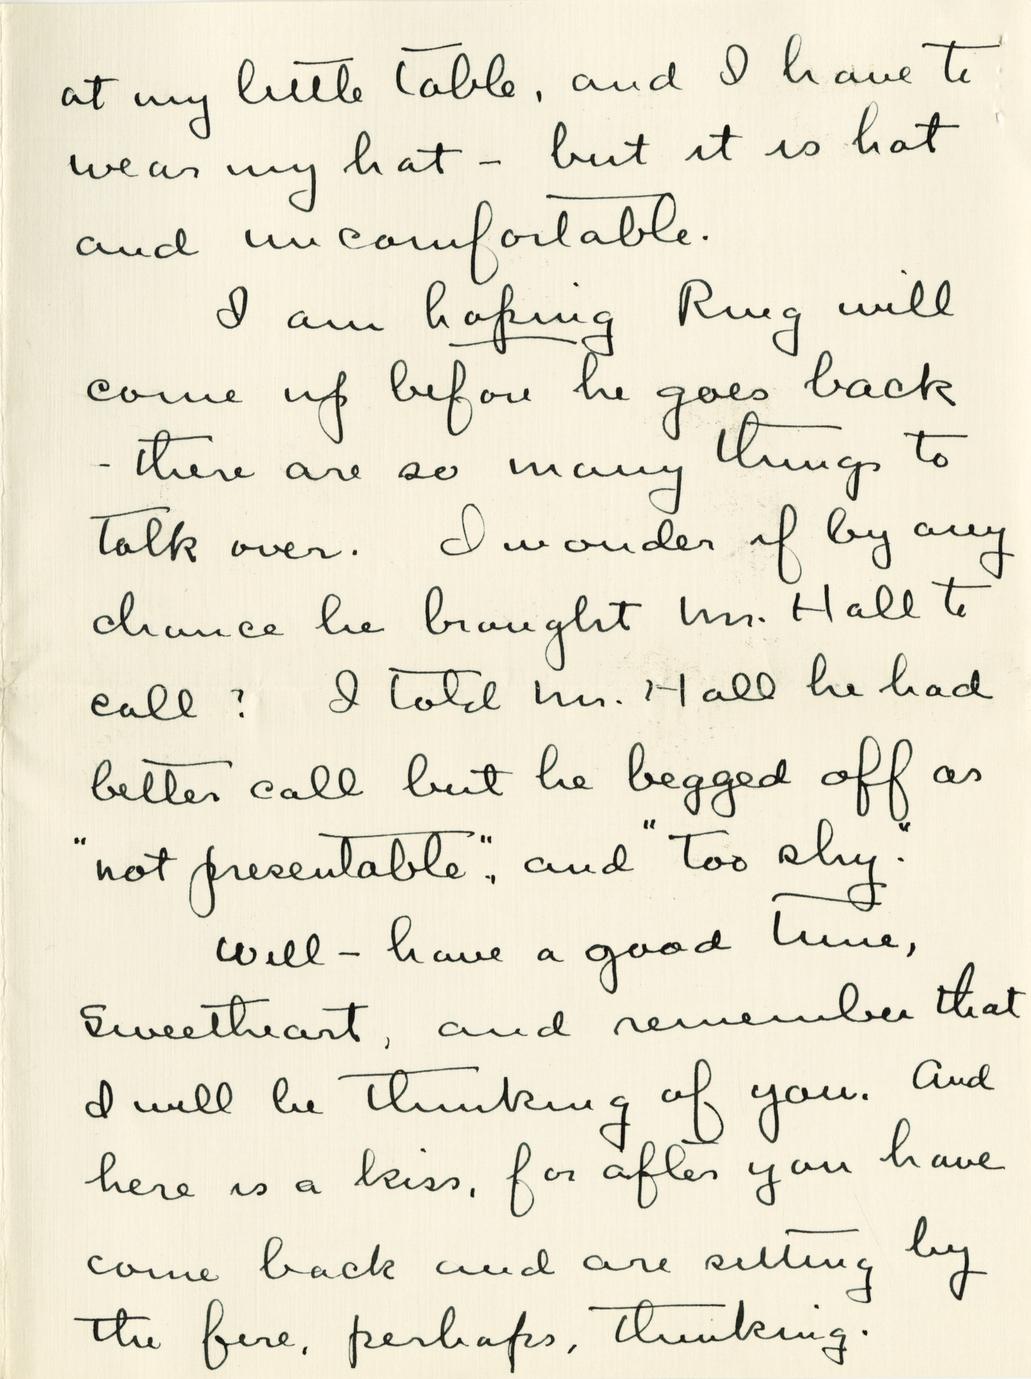 at my little table, and I have to
wear my hat - but it is hot
and uncomfortable.
I am hoping Ring will
come up before he goes back
- there are so many things to
talk over. I wonder if by any
chance he brought Mr. Hall to
call? I told Mr. Hall he had
better call but he begged off as
"not presentable", and "too shy."
Well - have a good time,
Sweetheart, and remember that
I will be thinking of you. And
here is a kiss, for after you have
come back and are sitting by
the fire, perhaps, thinking.